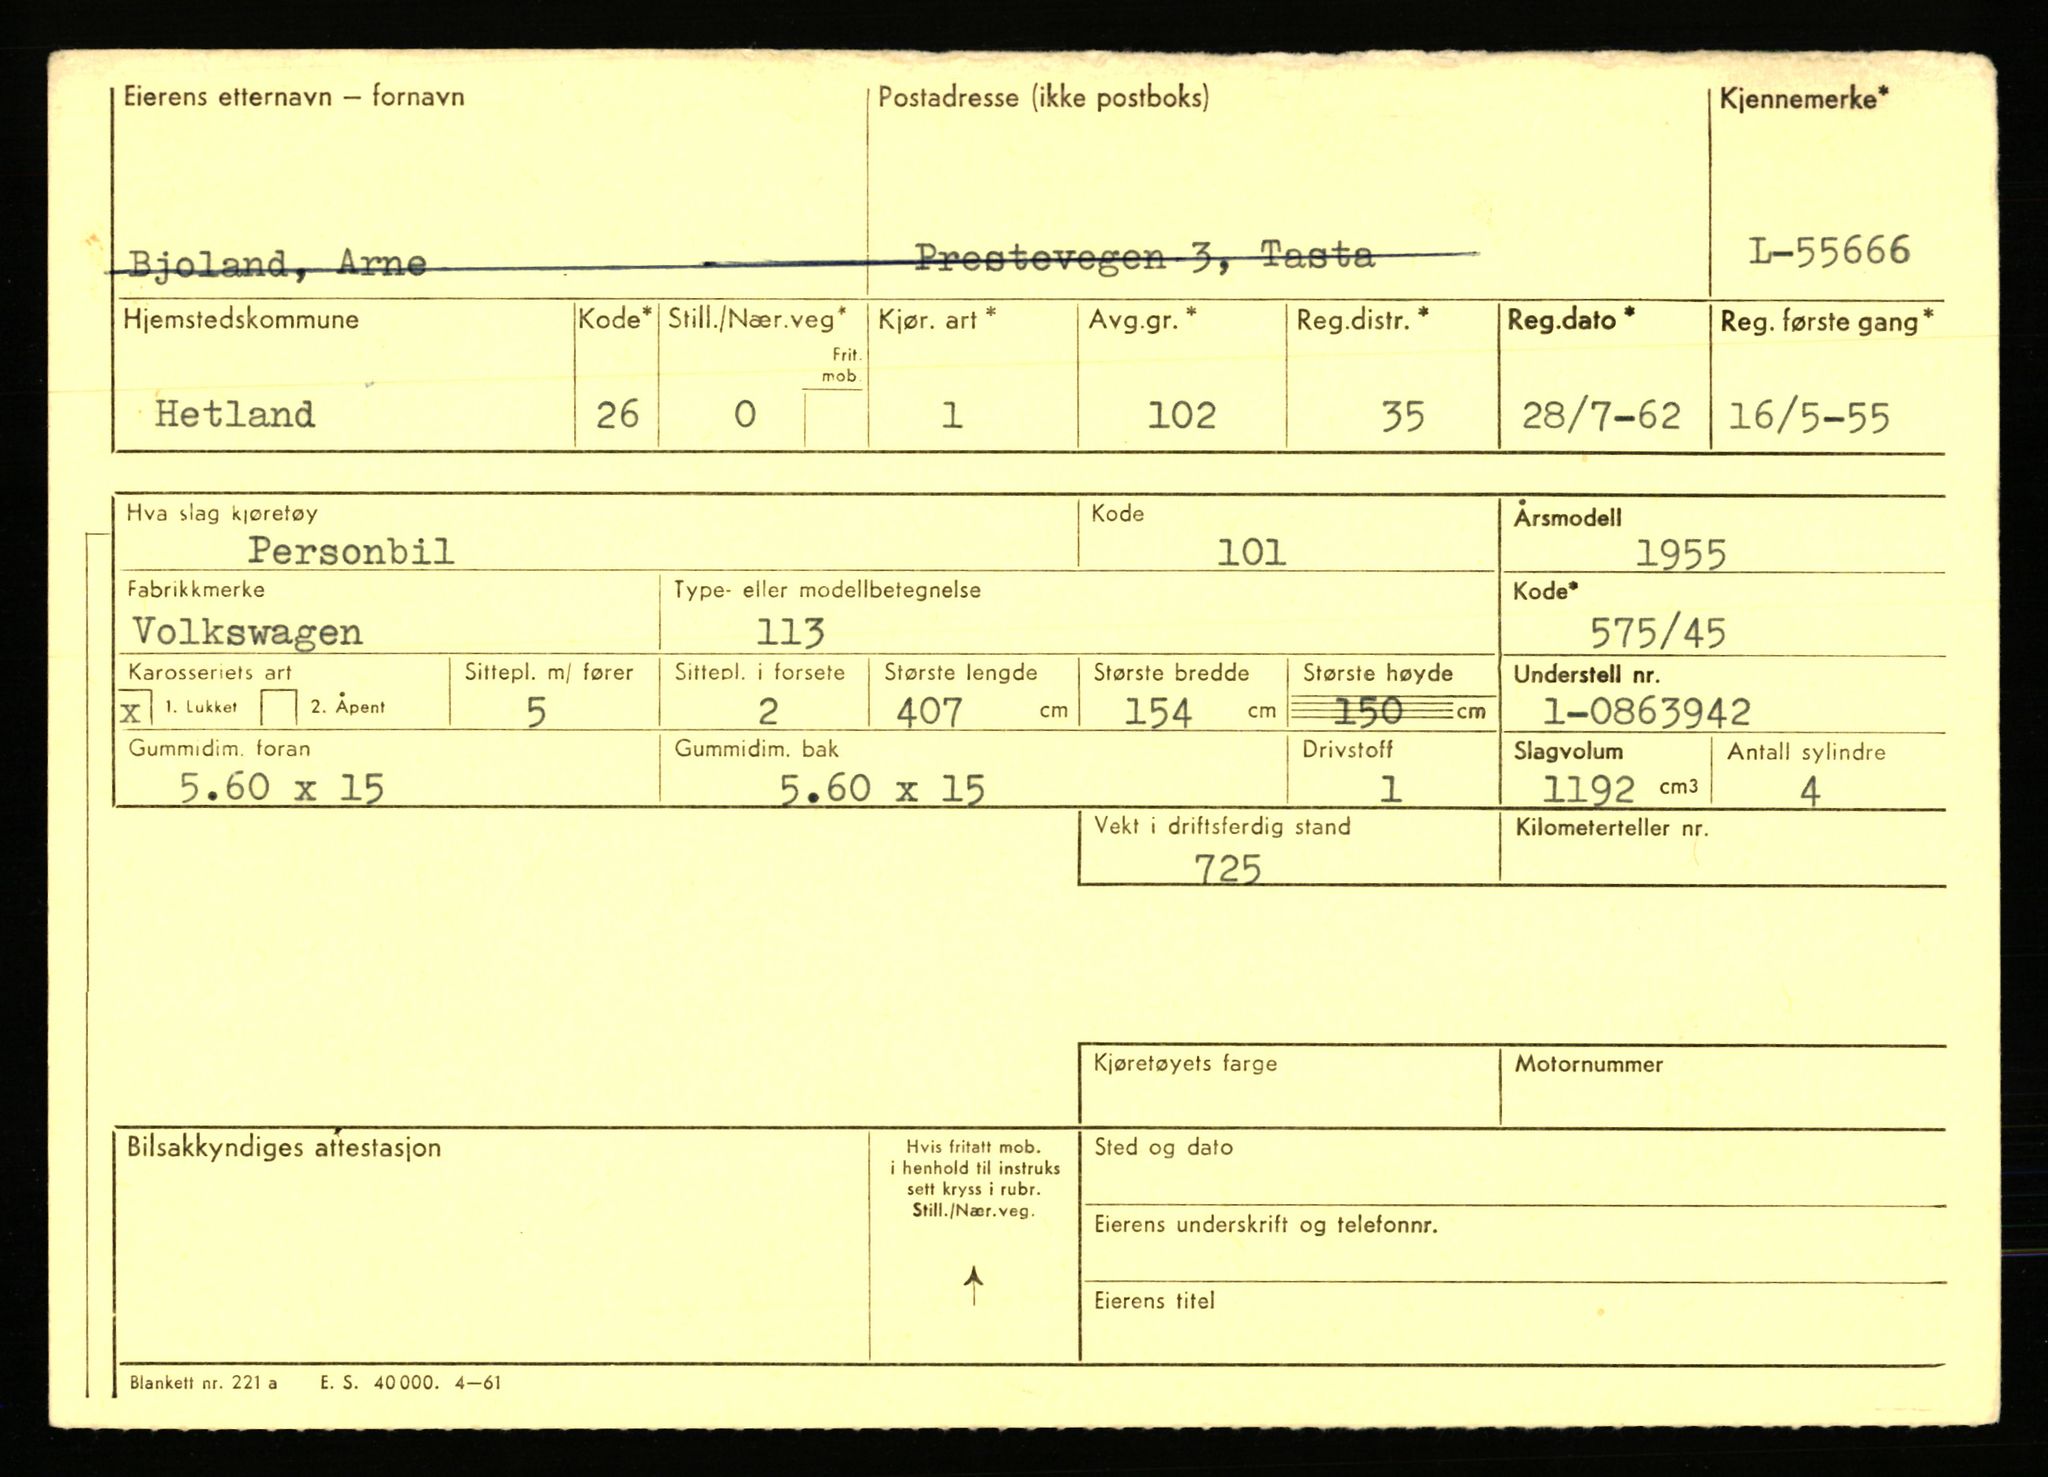 Eierens etternavn – fornavn Postadresse (ikke postboks) Kjennemerke*
Bjoland, Arne Prestevegen 3, Tasta L-55666
Hjemstedskommune Kode* Still./Nær.veg* Kjør. art * Avg.gr. * Reg.distr. * Reg.dato * Reg. første gang*
Frit.
mob.
Hetland 26 0 1 102 35 28/7-62 16/5-55
Hva slag kjøretøy Kode Årsmodell
Personbil 101 1955
Fabrikkmerke Type- eller modellbetegnelse Kode*
Volkswagen 113 575/45
Karosseriets art Sittepl. m/ fører Sittepl. i forsete Største lengde Største bredde Største høyde Understell nr.
x 1. Lukket 2. Åpent 5 2 407 cm 154 cm 150 cm 1-0863942
Gummidim. foran Gummidim. bak Drivstoff Slagvolum Antall sylindre
5.60 x 15 5.60 x 15 1 1192 cm3 4
Vekt i driftsferdig stand Kilometerteller nr.
725
Kjøretøyets farge Motornummer
Bilsakkyndiges attestasjon Hvis fritatt mob. Sted og dato
i henhold til instruks
sett kryss i rubr.
Still./Nær.veg.
Eierens underskrift og telefonnr.
↑
Eierens titel
Blankett nr. 221 a E. S. 40 000. 4–61